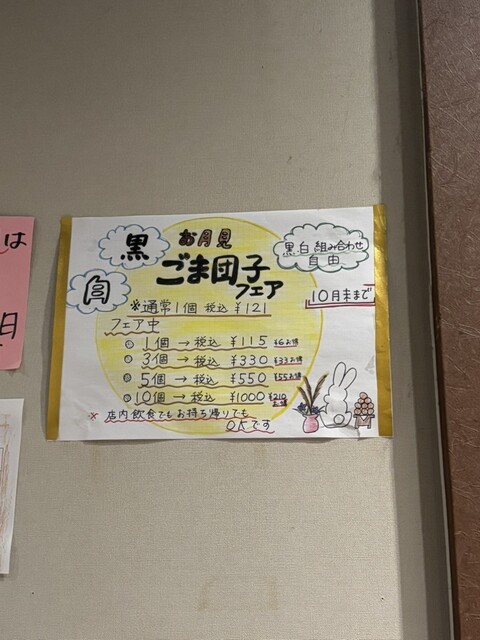 は
日
黒
白
お月見
ごま団子
フェア
黒、白 組み合わせ
自由
10月末まで
※通常1個 税込 ¥121
フェア中
1個 → 税込 ¥115 ¥6お得
3個 → 税込 ¥330 ¥33お得
5個 → 税込 ¥550 ¥55お得
10個 → 税込 ¥1000 ¥210お得
※ 店内飲食でもお持ち帰りでも
OKです